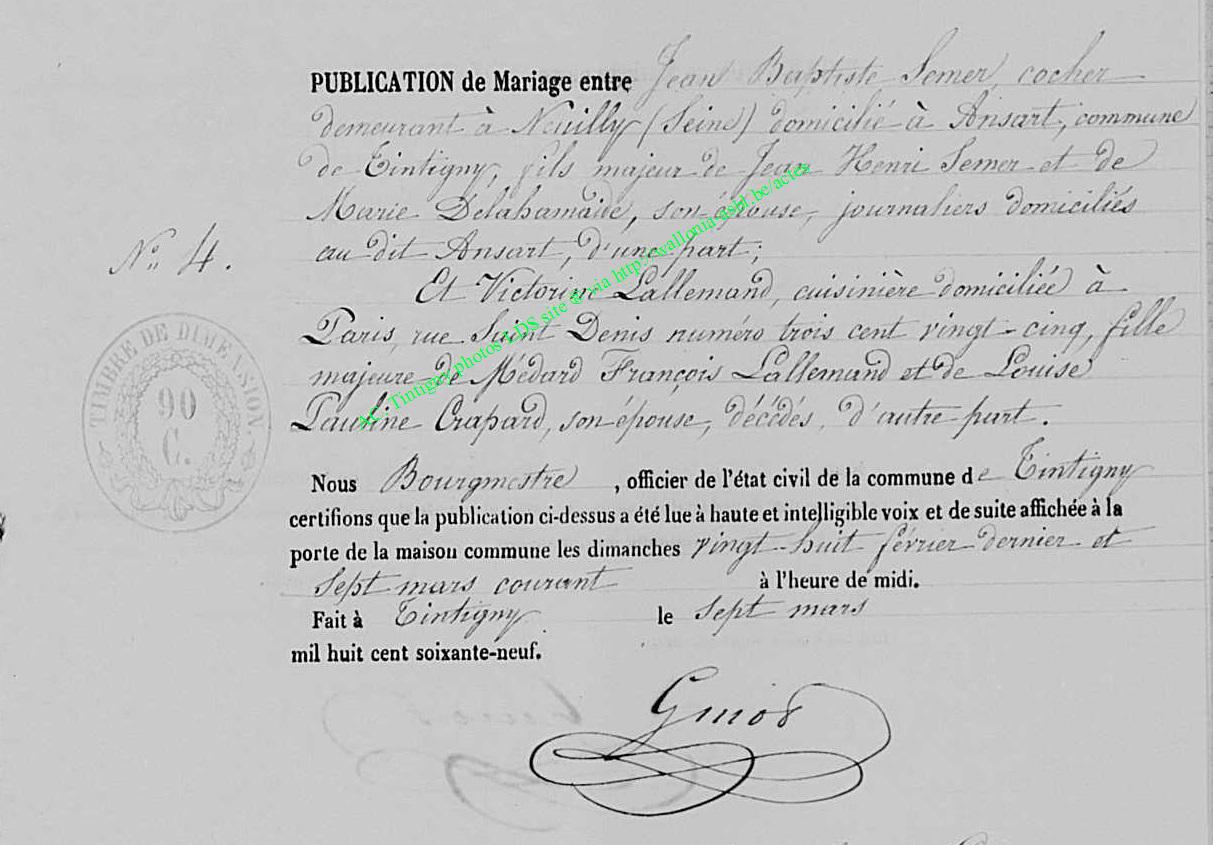 PUBLICATION de Mariage entre Jean Baptiste Semer, cocher
demeurant à Neuilly (Seine) domicilié à Ansart, commune
de Tintigny, fils majeur de Jean Henri Semer et de
Marie Delahamaide, son épouse, journaliers domiciliés
au dit Ansart, d'une part;
N° 4.
Et Victorine Lallemand, cuisinière domiciliée à
Paris, rue Saint Denis numéro trois cent vingt-cinq, fille
majeure de Médard François Lallemand et de Louise
Pauline Crapard, son épouse, décédés, d'autre part.
TIMBRE DE DIMENSION.
90
C.
AC. Tintigny photos LDS site @ via http://wallonia-asbl.be/actes
Nous Bourgmestre, officier de l'état civil de la commune de Tintigny
certifions que la publication ci-dessus a été lue à haute et intelligible voix et de suite affichée à la
porte de la maison commune les dimanches vingt-huit février dernier et
sept mars courant à l'heure de midi.
Fait à Tintigny le sept mars
mil huit cent soixante-neuf.